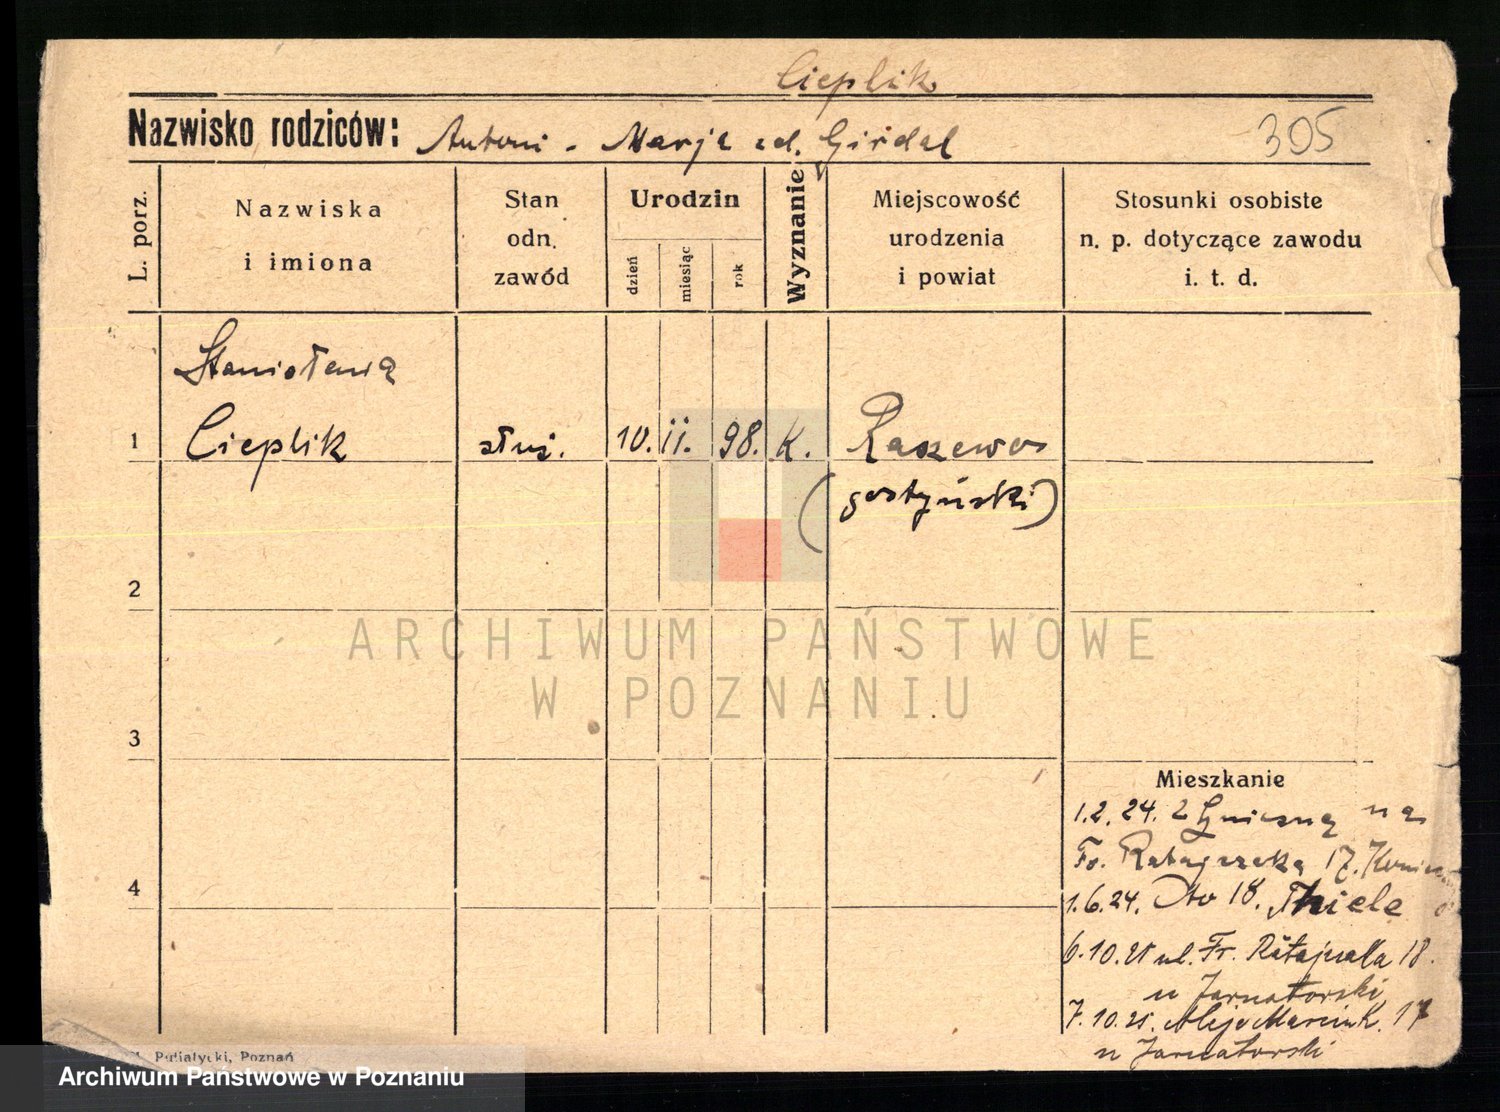 Cieplik
Nazwisko rodziców: Antoni - Marja zd. Girdal
305
L. porz.
Nazwiska
i imiona
Stan
odn.
zawód
Urodzin
dzień
miesiąc
rok
Wyznanie
Miejscowość
urodzenia
i powiat
Stosunki osobiste
n. p. dotyczące zawodu
i. t. d.
Stanisława
1 Cieplik służ. 10. ii. 98. K. Raszewo
(gostyński)
2
3
4
Mieszkanie
1.2.24. z Gniezna na
Fr. Ratajczaka 17.
1.6.24. Dto 18. Thiele
6.10.25 ul. Fr. Ratajczaka 18.
u Jarnatorski
7.10.25. Aleje Marcink. 17
u Jarnatorski
Putiatycki, Poznań
ARCHIWUM PAŃSTWOWE
W POZNANIU
Archiwum Państwowe w Poznaniu